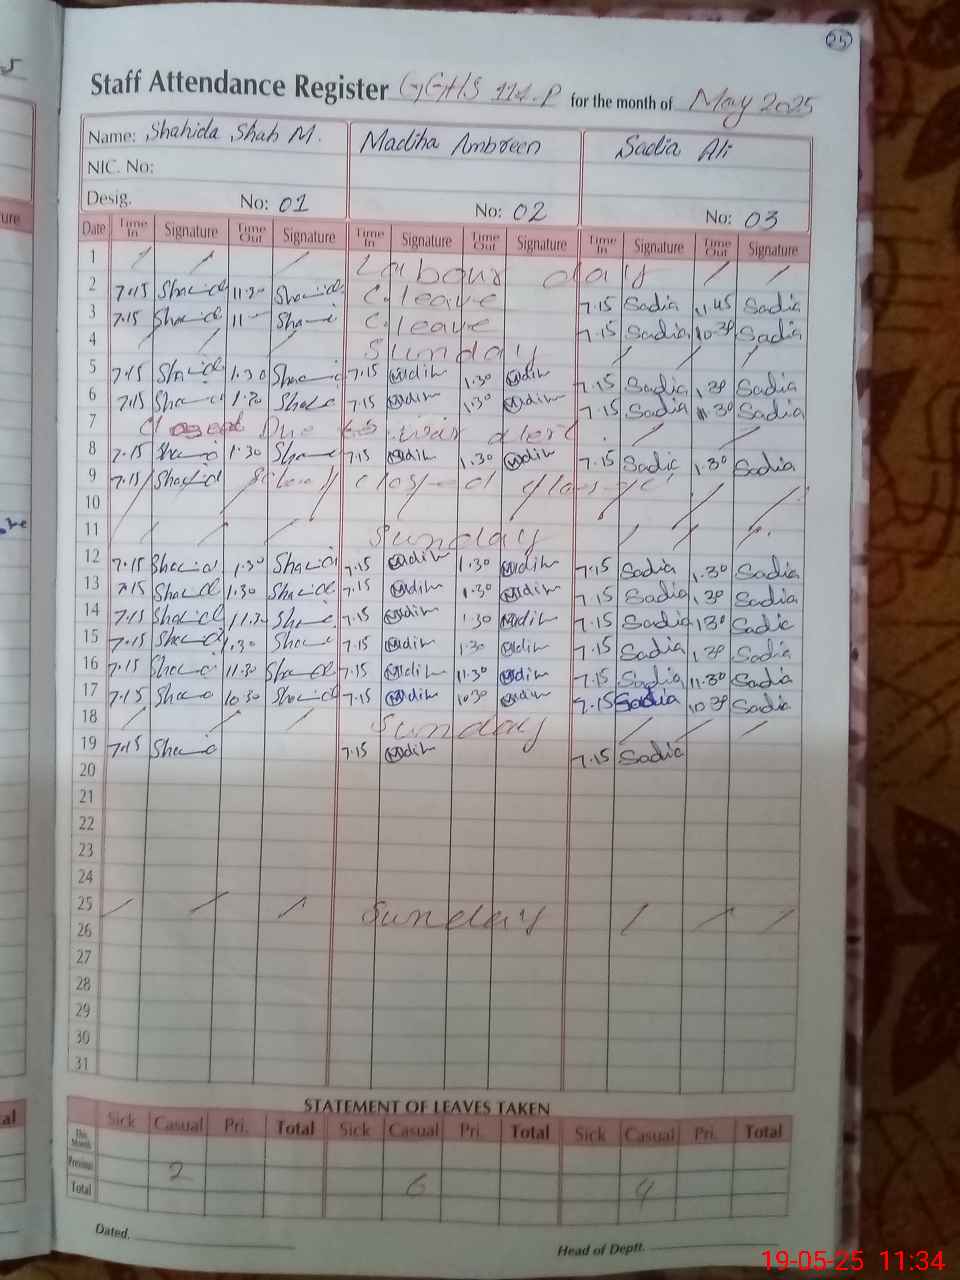 25
Staff Attendance Register GGHS 114.P for the month of May 2025
Name: Shahida Shah M. Madiha Ambreen Sadia Ali
NIC. No:
Desig. No: 01 No: 02 No: 03
Date Time In Signature Time Out Signature Time In Signature Time Out Signature Time In Signature Time Out Signature
1 / / / Labour day / /
2 7.15 11.30 C. leave 7.15 Sadia 11.45 Sadia
3 7.15 11 C. leave 7.15 Sadia 10.30 Sadia
4 / / / Sunday / / /
5 7.15 1.30 7.15 Madiha 1.30 Madiha 7.15 Sadia 1.30 Sadia
6 7.15 1.30 7.15 Madiha 1.30 Madiha 7.15 Sadia 1.30 Sadia
7 Due to war alert. / /
8 7.15 1.30 7.15 Madiha 1.30 Madiha 7.15 Sadia 1.30 Sadia
9 7.15 closed
10
11 / / / Sunday / / /
12 7.15 1.30 7.15 Madiha 1.30 Madiha 7.15 Sadia 1.30 Sadia
13 7.15 1.30 7.15 Madiha 1.30 Madiha 7.15 Sadia 1.30 Sadia
14 7.15 7.15 Madiha 1.30 Madiha 7.15 Sadia 1.30 Sadia
15 7.15 1.30 7.15 Madiha 1.30 Madiha 7.15 Sadia 1.30 Sadia
16 7.15 11.30 7.15 Madiha 11.30 Madiha 7.15 Sadia 11.30 Sadia
17 7.15 10.30 7.15 Madiha 10.30 Madiha 7.15 Sadia 10.30 Sadia
18 / / / Sunday / / /
19 7.15 7.15 Madiha 7.15 Sadia
20
21
22
23
24
25 / / / Sunday / / /
26
27
28
29
30
31
STATEMENT OF LEAVES TAKEN
Sick Casual Pri. Total Sick Casual Pri. Total Sick Casual Pri. Total
This Month
Previous 2 6 4
Total
Dated. Head of Deptt.
19-05-25 11:34